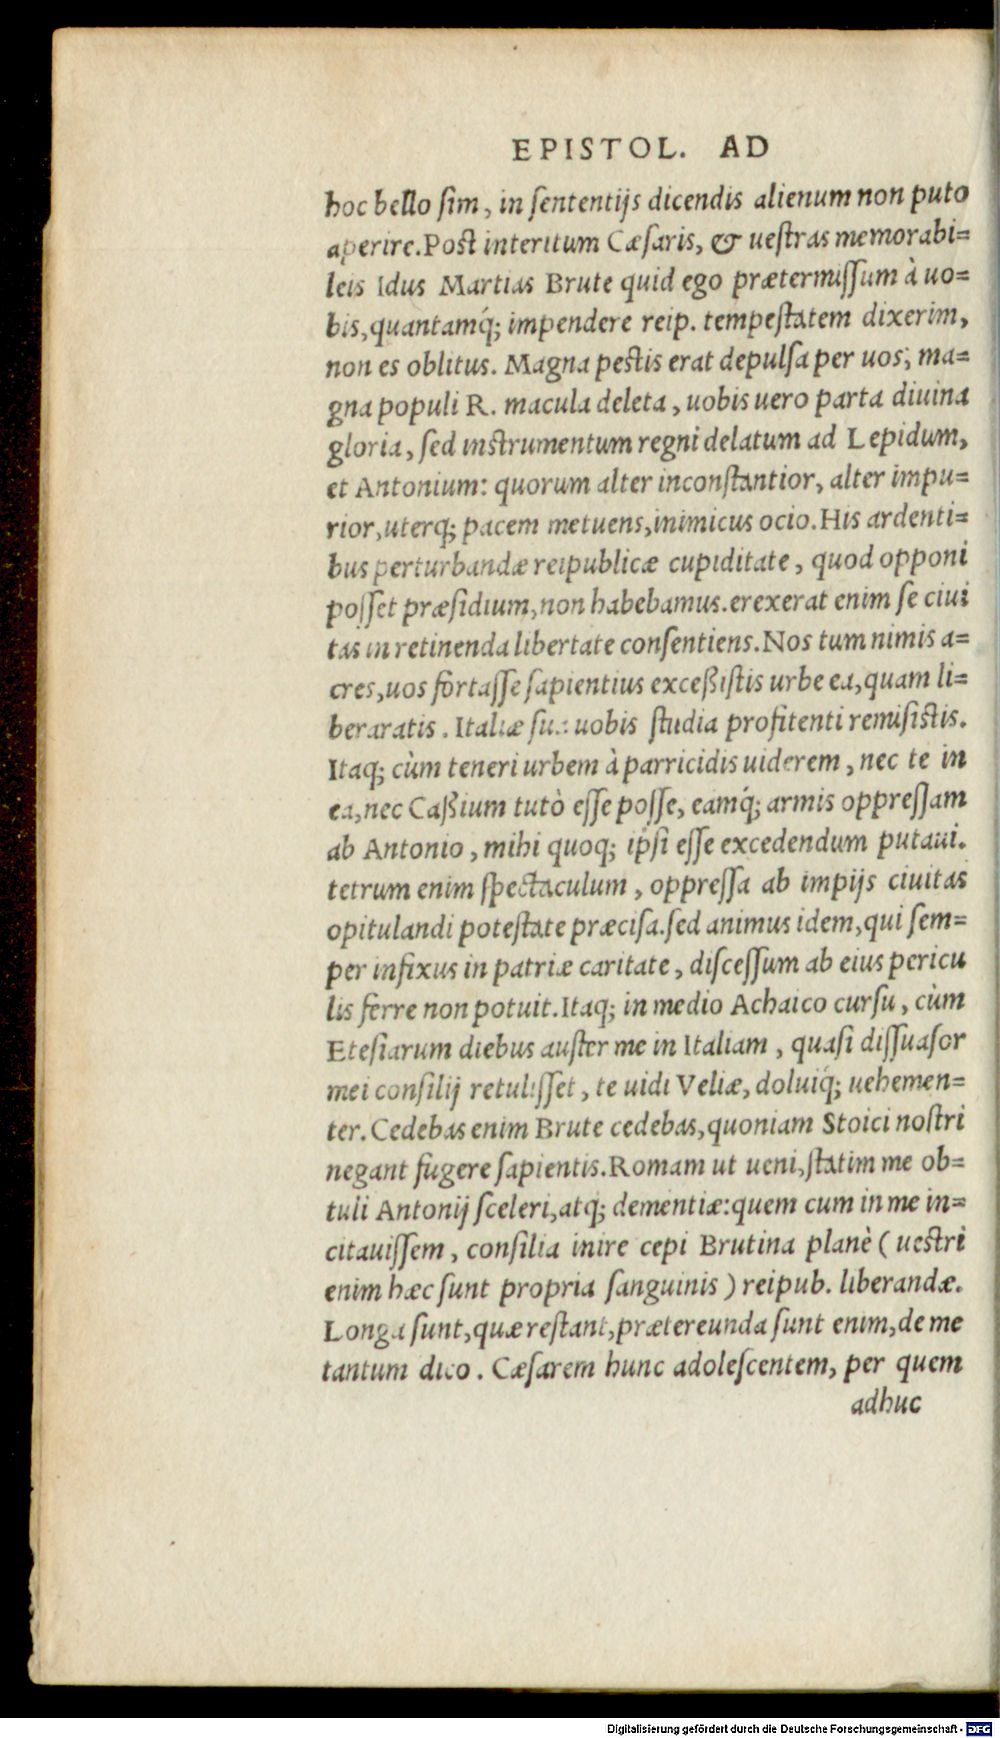 EPISTOL. AD
hoc bello ſim, in ſententijs dicendis alienum non puto
aperire. Poſt interitum Cæſaris, & ueſtras memorabi=
leis Idus Martias Brute quid ego prætermiſſum à uo=
bis, quantamq́; impendere reip. tempeſtatem dixerim,
non es oblitus. Magna peſtis erat depulſa per uos, ma=
gna populi R. macula deleta, uobis uero parta diuina
gloria, ſed inſtrumentum regni delatum ad Lepidum,
et Antonium: quorum alter inconſtantior, alter impu=
rior, uterq; pacem metuens, inimicus ocio. His ardenti=
bus perturbandæ reipublicæ cupiditate, quod opponi
poſſet præſidium, non habebamus. erexerat enim ſe ciui
tas in retinenda libertate conſentiens. Nos tum nimis a=
cres, uos fortaſſe ſapientius exceßiſtis urbe ea, quam li=
beraratis. Italiæ ſuæ uobis ſtudia profitenti remiſiſtis.
Itaq; cùm teneri urbem à parricidis uiderem, nec te in
ea, nec Caßium tutò eſſe poſſe, eamq́; armis oppreſſam
ab Antonio, mihi quoq; ipſi eſſe excedendum putaui.
tetrum enim ſpectaculum, oppreſſa ab impijs ciuitas
opitulandi poteſtate præciſa. ſed animus idem, qui ſem=
per infixus in patriæ caritate, diſceſſum ab eius pericu
lis ferre non potuit. Itaq; in medio Achaico curſu, cùm
Eteſiarum diebus auſter me in Italiam, quaſi diſſuaſor
mei conſilij retuliſſet, te uidi Veliæ, doluiq́; uehemen=
ter. Cedebas enim Brute cedebas, quoniam Stoici noſtri
negant fugere ſapientis. Romam ut ueni, ſtatim me ob=
tuli Antonij ſceleri, atq; dementiæ: quem cum in me in=
citauiſſem, conſilia inire cepi Brutina planè (ueſtri
enim hæc ſunt propria ſanguinis) reipub. liberandæ.
Longa ſunt, quæ reſtant, prætereunda ſunt enim, de me
tantum dico. Cæſarem hunc adoleſcentem, per quem
adhuc
Digitalisierung gefördert durch die Deutsche Forschungsgemeinschaft - DFG